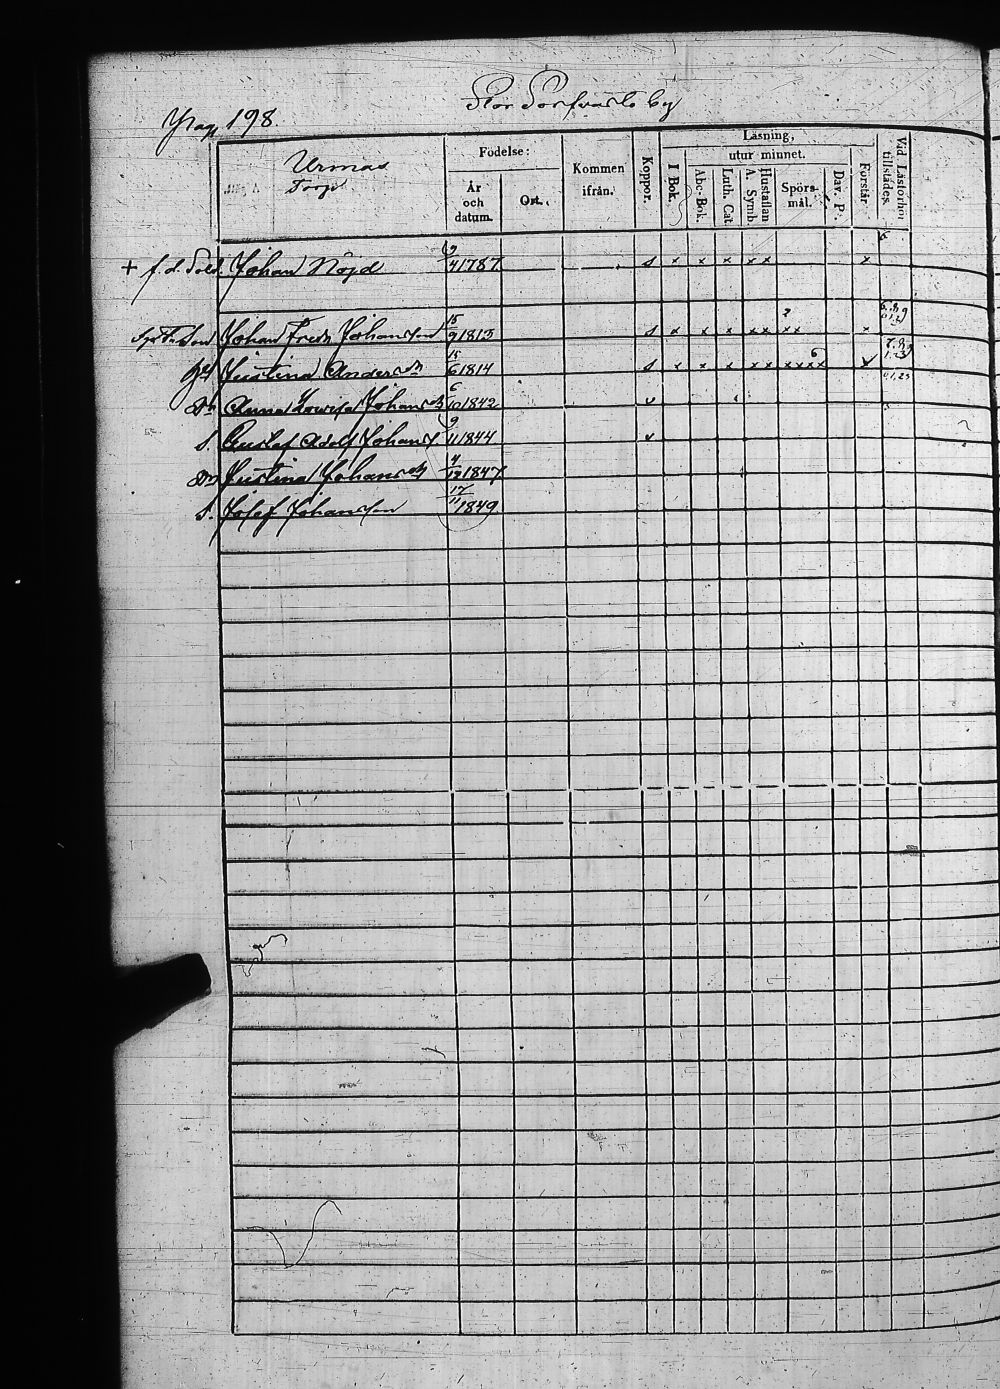 Pag. 198
Stor by
Urmas
Torp
Födelse:
År och datum.
Ort.
Kommen ifrån.
Koppor.
Läsning,
I Bok.
utur minnet.
Abc-Bok
Luth. Cat.
Hustaflan A. Symb.
Spörs-mål.
Dav. Ps.
Förstår
Vid Läsförhör tillstädes.
+ f. d. Sold. Johan Nöjd 4 1787 s x x x x x x
Son Johan Fredr. Johansson 15/9 1813 s x x x x x x x x
Justina Andersdr 15/6 1814 s x x x x x x x x x
Dr Anna Lovisa Johansdr 6/10 1842 v
S. Gustaf Adolf Johans. 9/11 1844 v
Dr Justina Johansdr 4/12 1847
S. Josef Johansson 17/11 1849